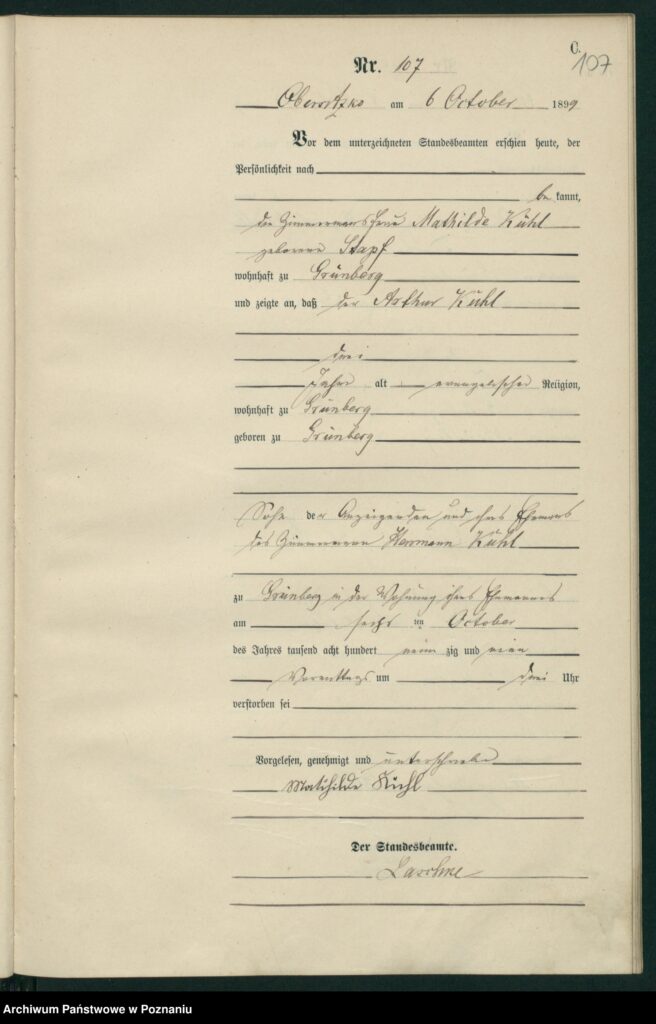 C.
107
Nr. 107
Obersitzko am 6 October 1899
Vor dem unterzeichneten Standesbeamten erschien heute, der
Persönlichkeit nach
be kannt,
die Zimmermannsfrau Mathilde Kühl
geborene Stapf
wohnhaft zu Grünberg
und zeigte an, daß der Arthur Kühl
drei
Jahre alt evangelischer Religion,
wohnhaft zu Grünberg
geboren zu Grünberg
Sohn der Anzeigenden und ihres Ehemannes
des Zimmermann Herrmann Kühl
zu Grünberg in der Wohnung ihres Ehemannes
am sechs ten October
des Jahres tausend acht hundert neun zig und neun
Vormittags um drei Uhr
verstorben sei
Vorgelesen, genehmigt und unterschrieben
Mathilde Kühl
Der Standesbeamte.
Laschke
Archiwum Państwowe w Poznaniu